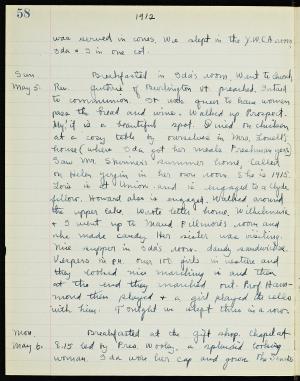 58
1912
was served in cones. We slept in the Y.W.C.A. room
Ida & I in one cot.
Sun. Breakfasted in Ida's room. Went to church,
May 5. Rev. Guthrie of Burlington Vt. preached. Invited
to communion. It was queer to have women
pass the bread and wine. Walked up Prospect.
My! it is a beautiful spot. Dined on chicken
at a cozy table by ourselves in Mrs. Lowell's
house (where Ida got her meals Freshman year)
Saw Mr. Skinner's summer home, called
on Helen in her own room. She is 1915.
Lois is at Union and is engaged to a Clyde
fellow. Howard also is engaged. Walked around
the upper lake. Wrote letters home. Wilhelmina
& I went up to Maud 's room and
she made candy. Her sister was visiting.
Nice supper in Ida's room. dandy sandwiches.
Vespers in P.M. our 100 girls in vesture and
they looked nice marching in and then
at the end they marched out. Prof. Ham-
mond then played & a girl played its cello
with him. Tonight we slept three in a row.
Mon. Breakfasted at the gift shop. Chapel at
May 6. 8.15 led by Pres. Wooley, a splendid looking
woman. Ida wore her cap and gown. The Senate